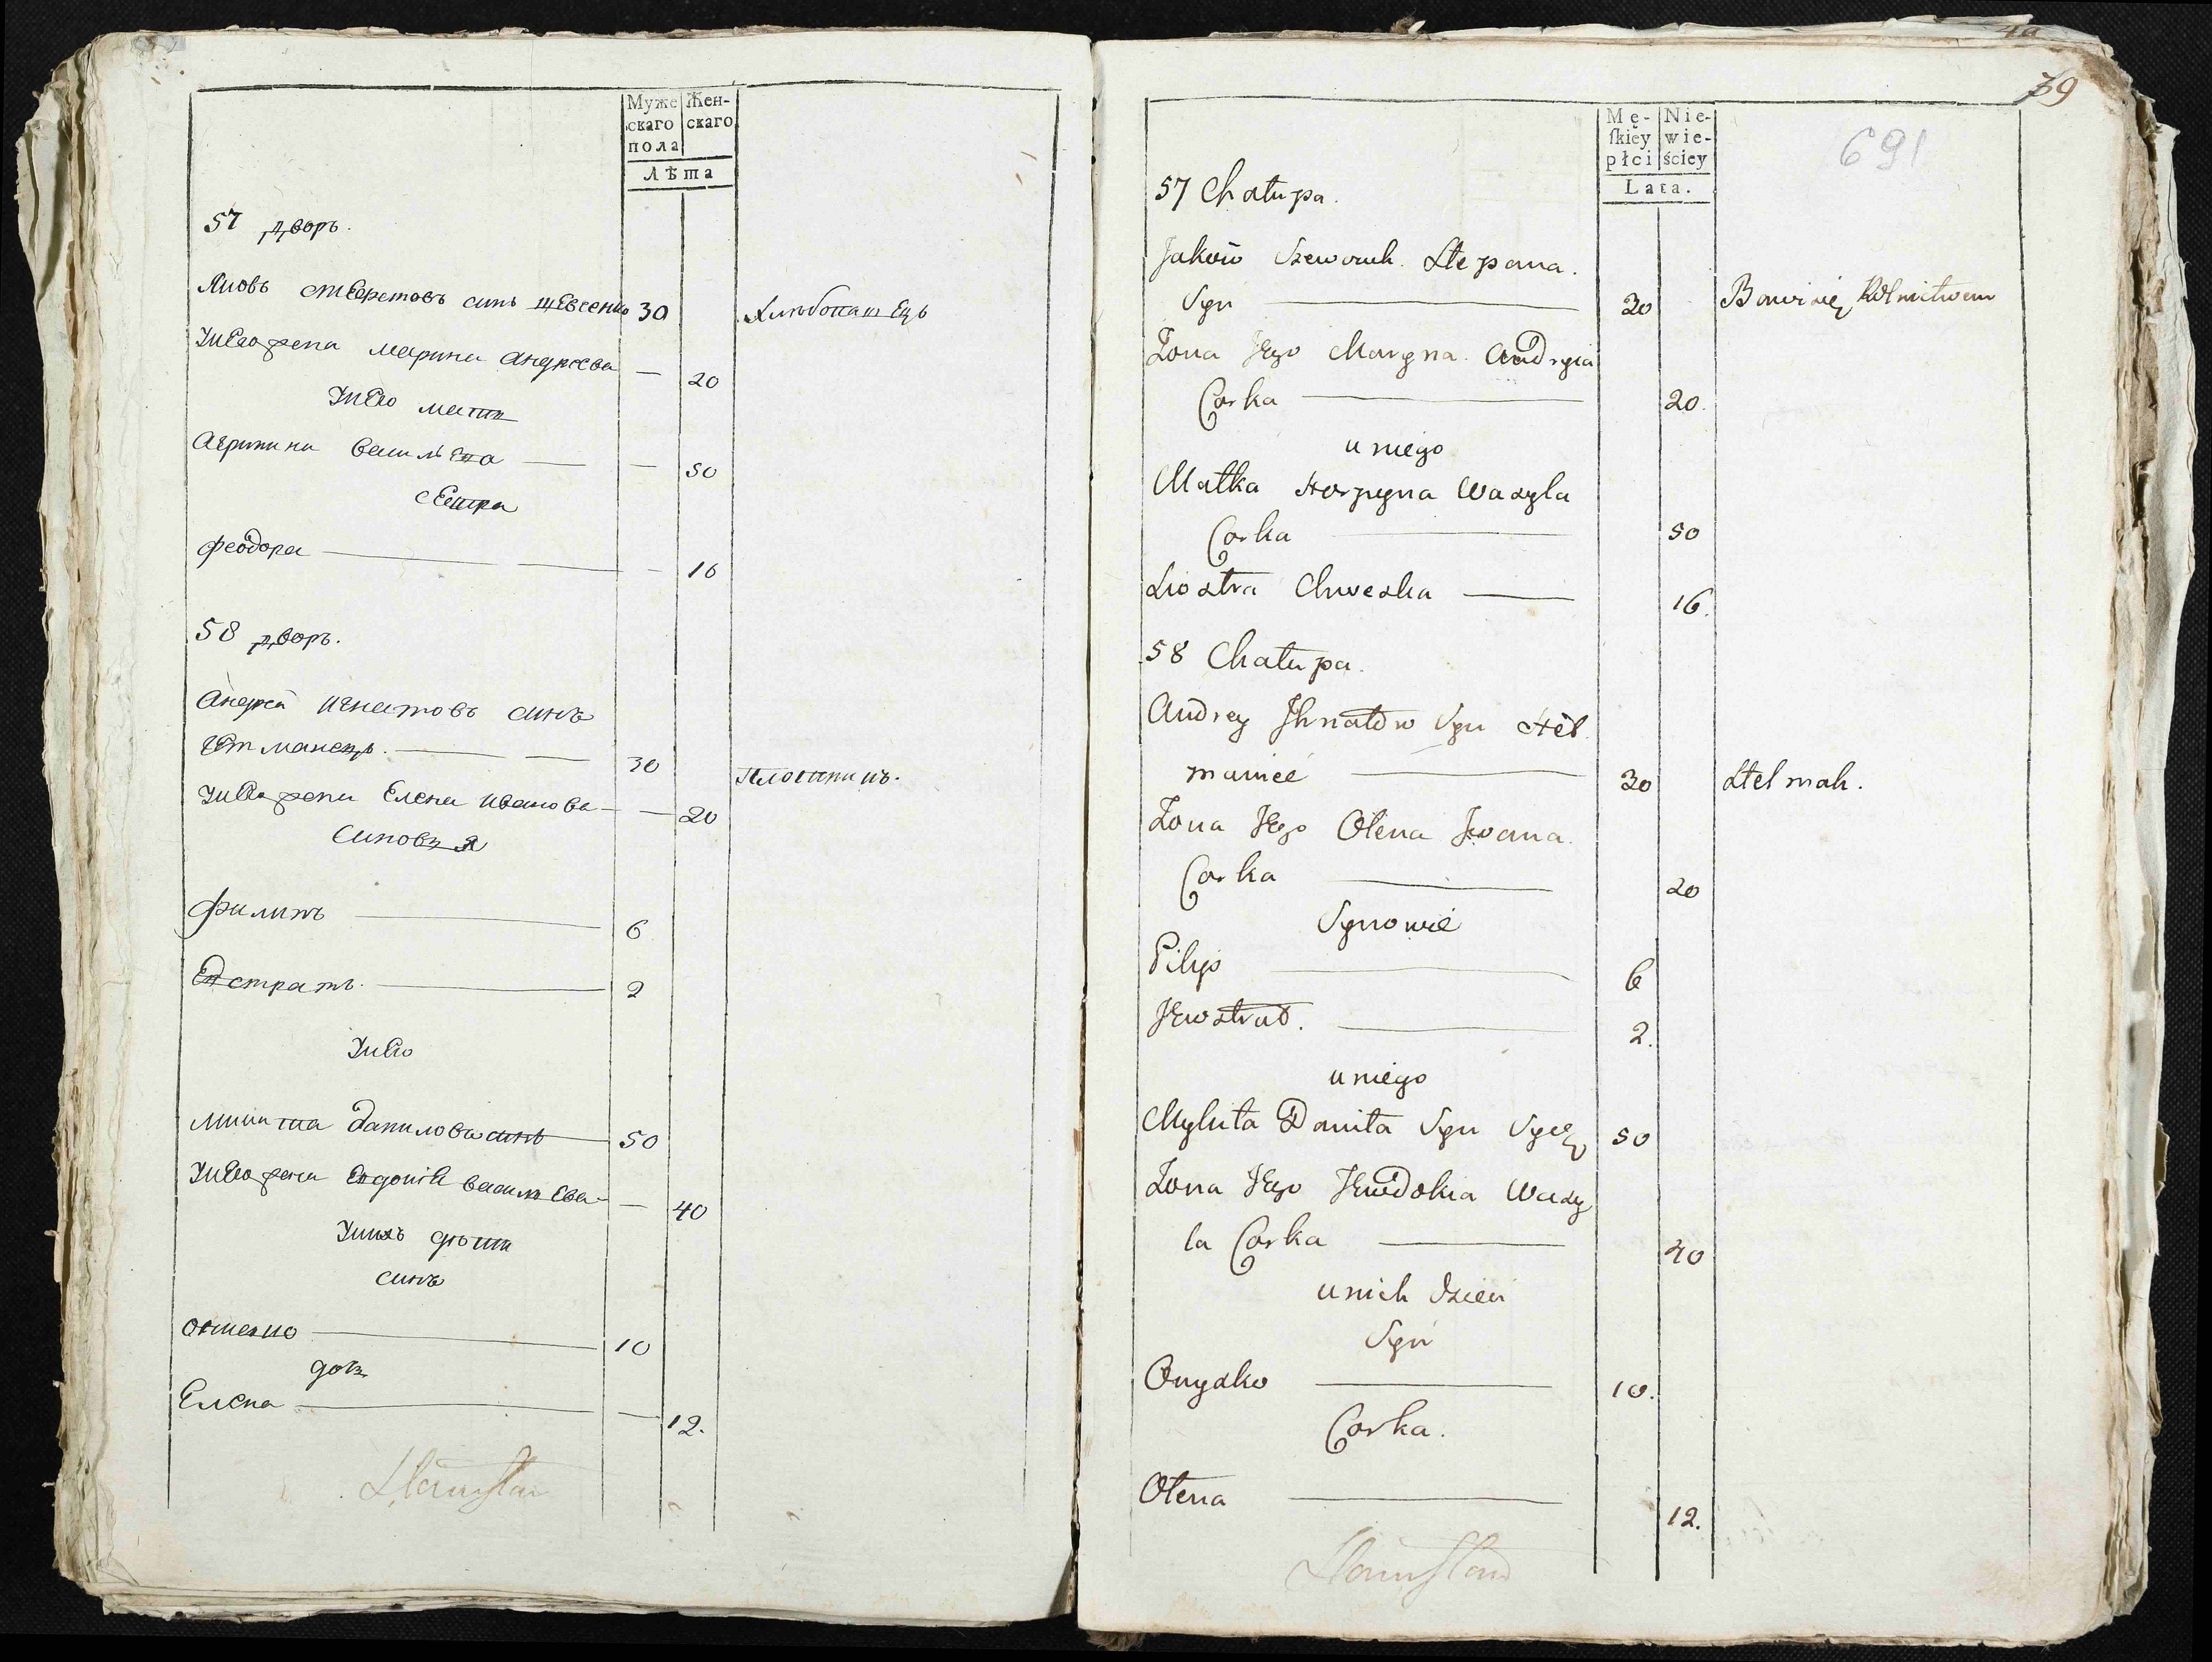 Муже
скаго
пола
Жен-
скаго
Лѣта
57 дворъ.
Яковъ синъ шЕвсенко 30 ХлѣбопашЕцъ
УнЕго жена марина андрѣева — 20
УнЕго мати
Агрипина василЕва — — 50
сЕстра
феодора — — 16
58 дворъ.
Андрей игнатовъ синъ
гЕтманецъ. — — 30 Плотникъ.
УнЕго жена Елена иванова — — 20
Синовья
Филипъ — 6
Евстратъ. — 2
УнЕго
микита даниловъ синъ — 50
УнЕго жена Евдокия василЕва — — 40
Унихъ дѣти
синъ
— 10
дочь
Елена — — 12.
39
691
Mę-
ſkiey
płci
Nie-
wie-
ściey
Lata.
57 Chałupa.
Jakow Szewczuk Stepana.
Syn — 30 Bawi się Rolnictwem
Żona Jego Maryna Andryia
Corka — 20.
u niego
Matka Horpyna Wasyla
Corka — 50
Siostra Chweska — 16.
58 Chałupa.
Andrey Jhnatow Syn Het
maniec — 30 Stelmah.
Żona Jego Olena Jwana.
Corka — 20
Synowie
Pilip — 6
Jewstrat. — 2.
u niego
Mykita Daniła Syn 50
Żona Jego Jewdokia Wasy
la Corka — 40
u nich dzieci
Syn
Onysko — 10.
Corka.
Olena — 12.